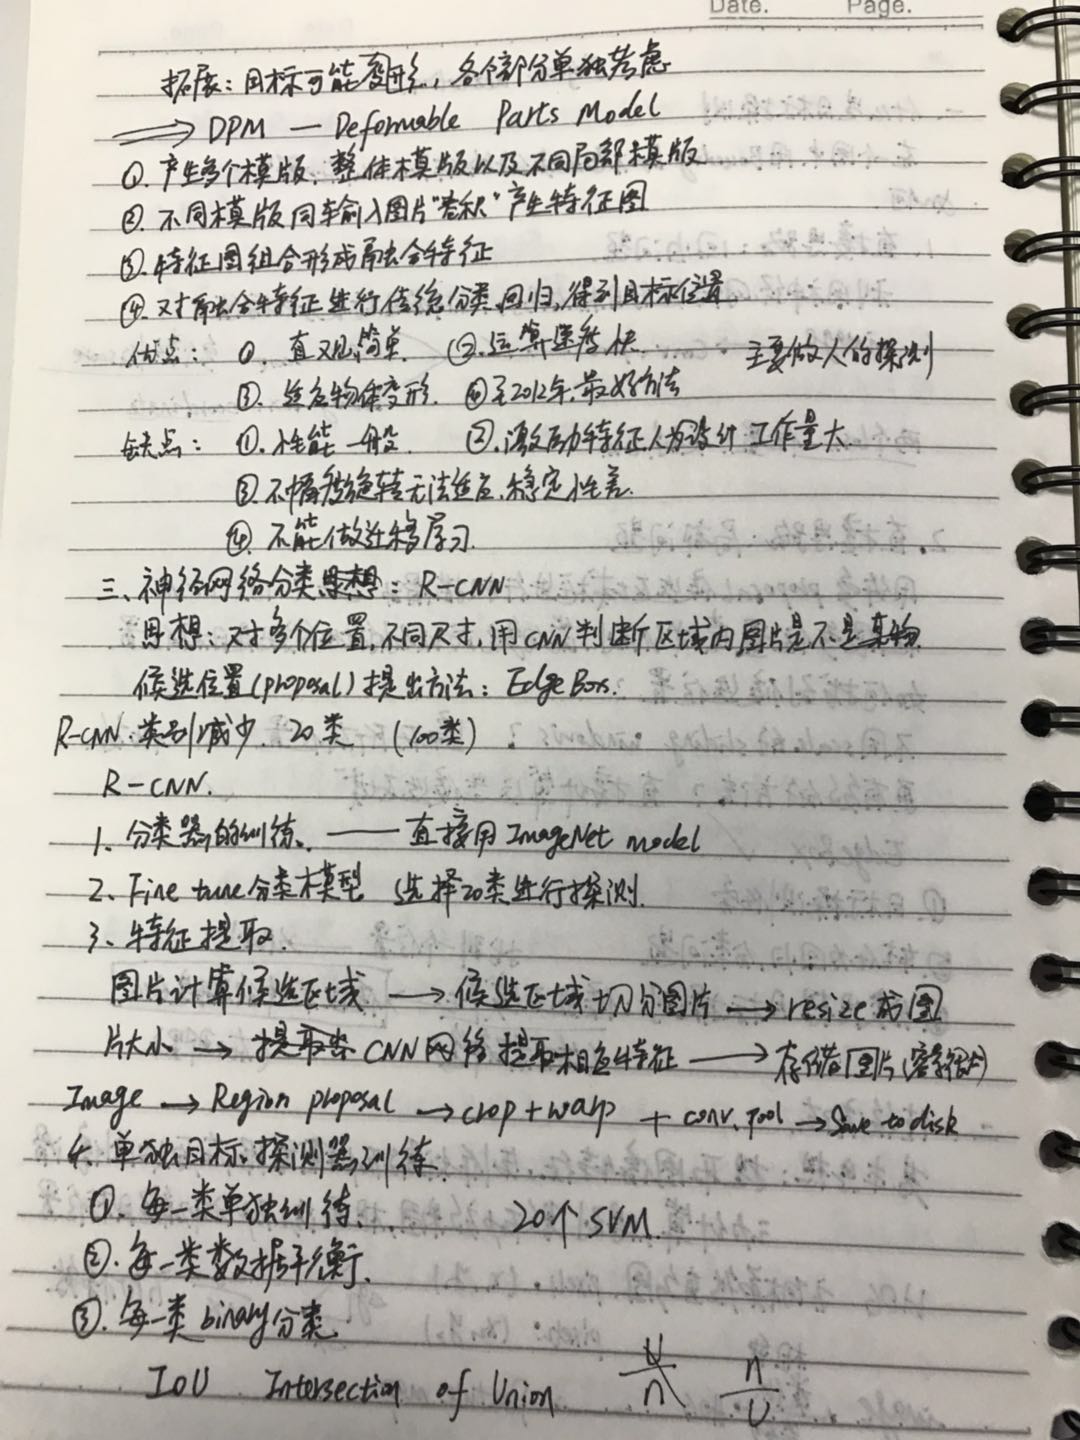 Date. Page.
拓展：目标可能变形，各个部分单独考虑
⟹ DPM — Deformable Parts Model
①. 产生多个模版，整体模版以及不同局部模版
②. 不同模版同输入图片"卷积"产生特征图
③. 特征图组合形成融合特征
④. 对融合特征进行传统分类，回归，得到目标位置
优点： ①. 直观简单 ②. 运算速度快 主要做人的探测
③. 适应物体变形 ④至2012年，最好方法
缺点： ①. 性能一般 ②. 激励特征人为设计 工作量大
③. 不幅度旋转无法适应，稳定性差
④. 不能做迁移学习
三、神经网络分类思想：R-CNN
思想：对多个位置，不同尺寸，用CNN判断区域内图片是不是某物
候选位置(proposal)提出方法：EdgeBox.
R-CNN. 类别减少 20类 (100类)
R-CNN.
1. 分类器的训练. —— 直接用ImageNet model
2. Fine tune分类模型 选择20类进行探测.
3、特征提取
图片计算候选区域 → 候选区域切分图片 → resize成图
片大小 → CNN网络提取相应特征 → 存储图片
Image → Region proposal → crop + warp + conv. pool → Save to disk
4. 单独目标探测器训练
①. 每一类单独训练. 20个SVM.
②. 每一类数据平衡.
③. 每一类binary分类
IoU Intersection of Union ∩/U